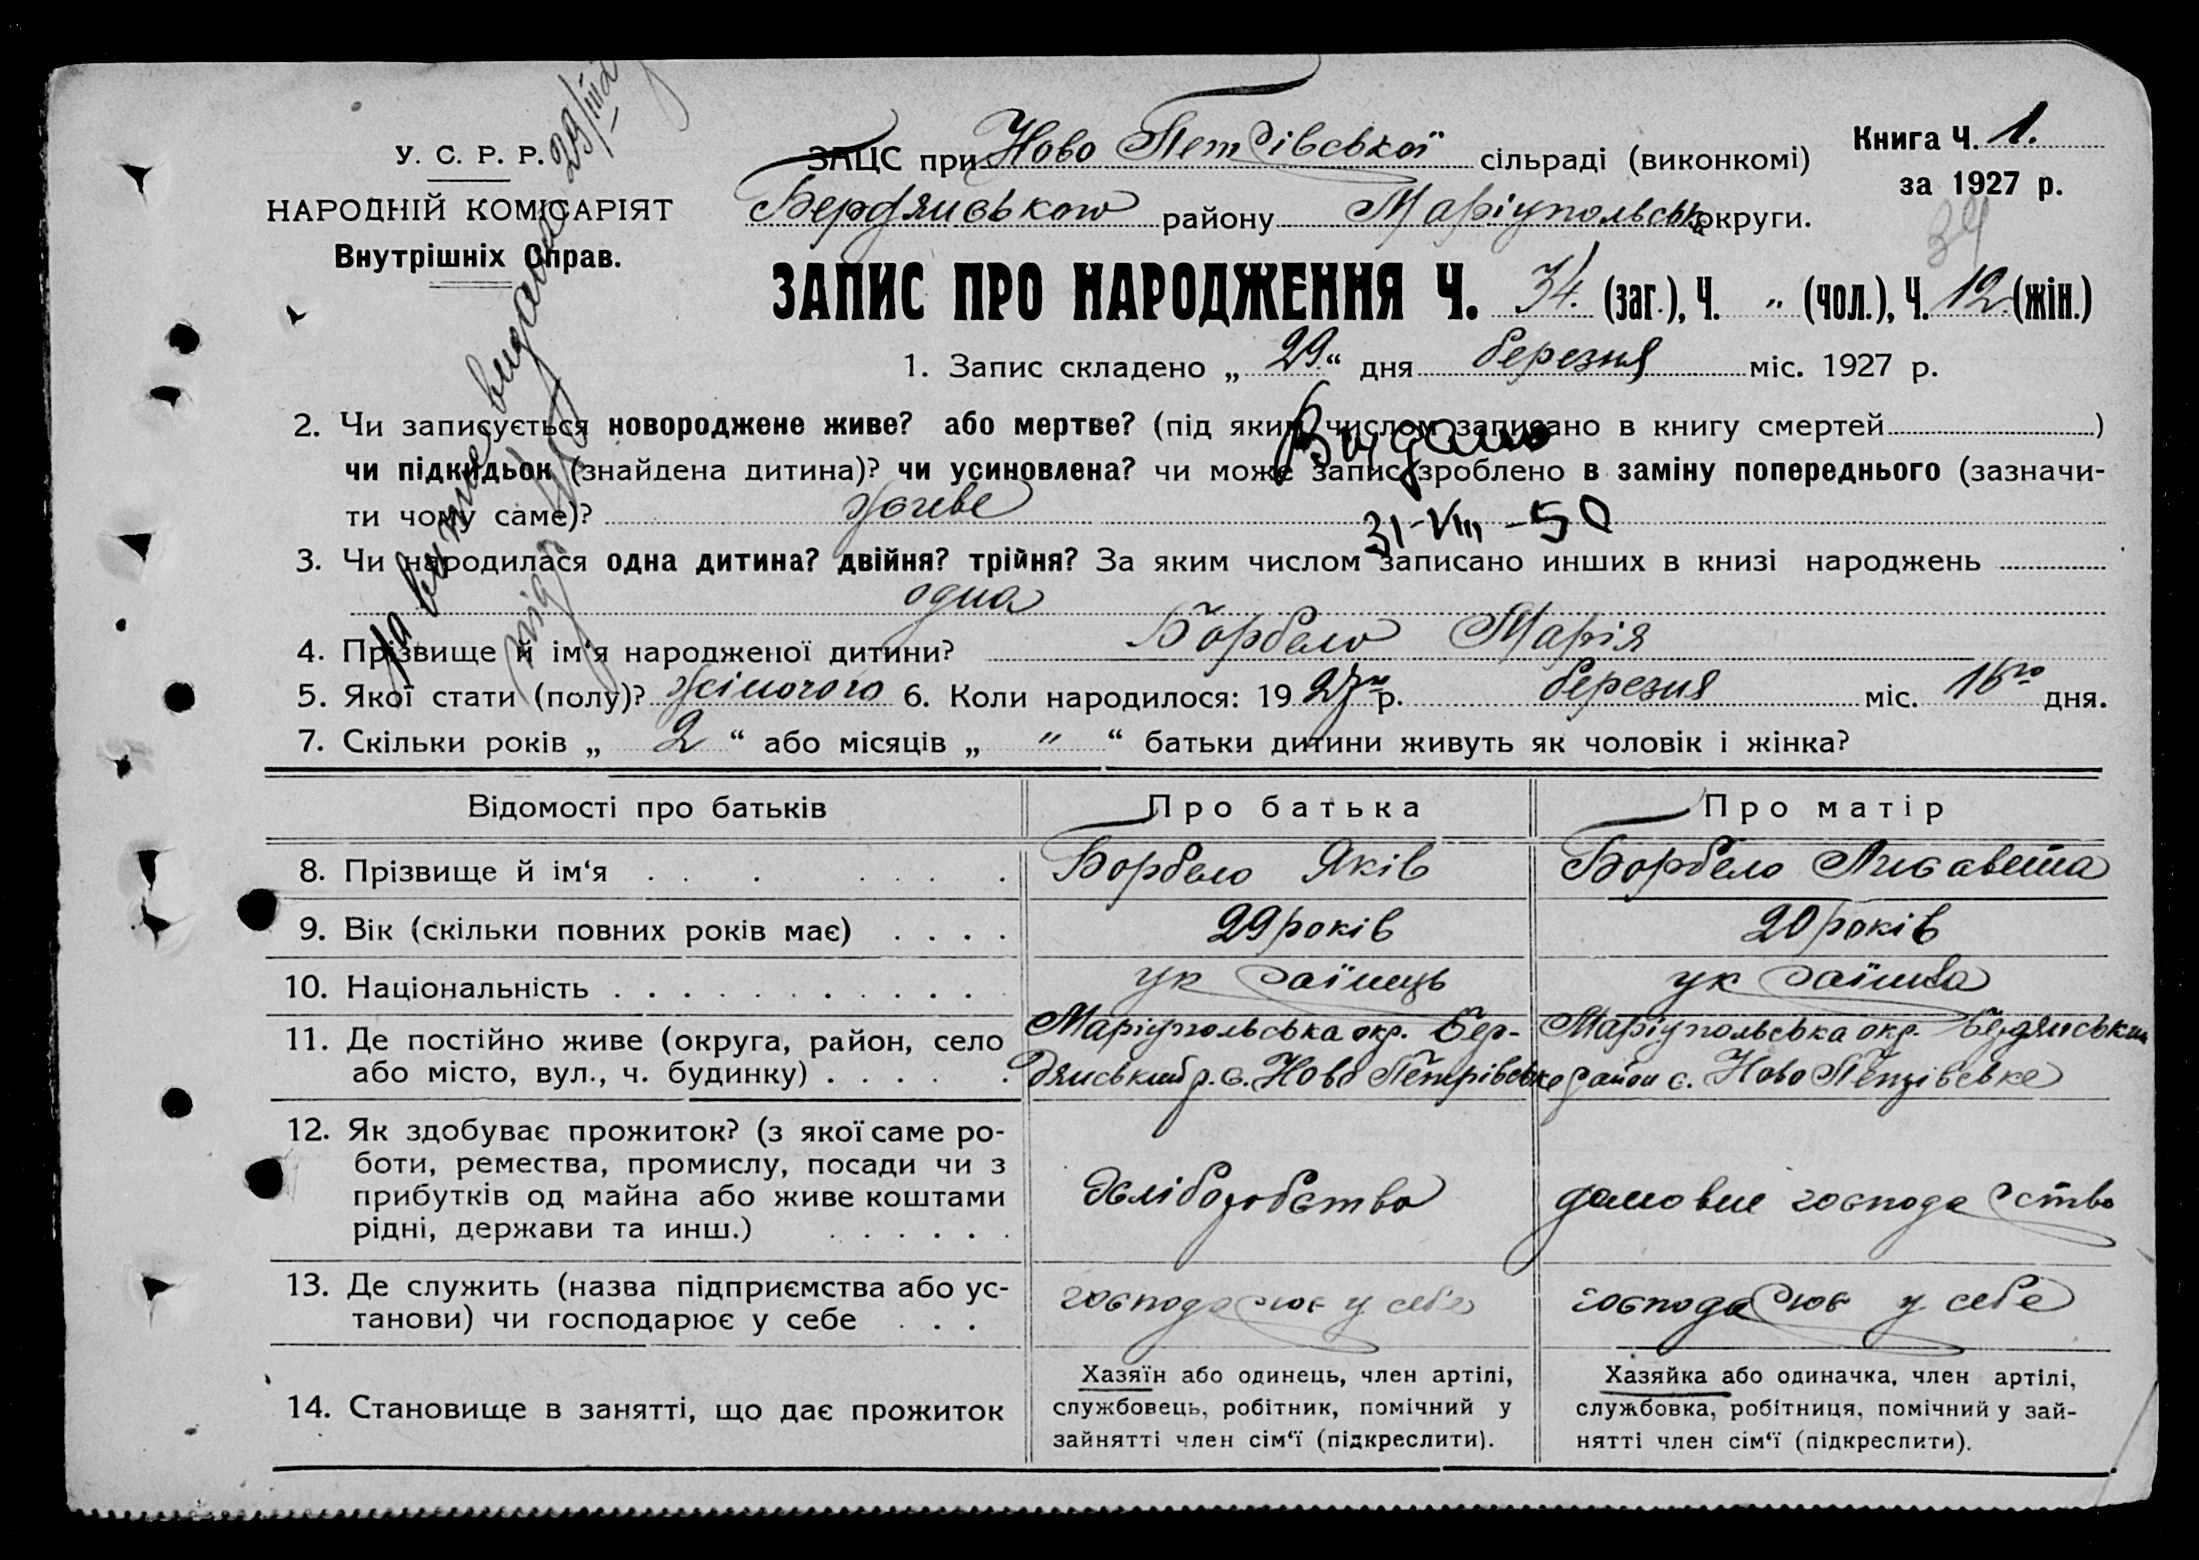 У. С. Р. Р.
НАРОДНІЙ КОМІСАРІЯТ
Внутрішніх Справ.
ЗАЦС при Ново Петрівської сільраді (виконкомі)
Бердянського району Маріупольськ округи.
Книга Ч. 1.
за 1927 р.
34
ЗАПИС ПРО НАРОДЖЕННЯ Ч. 34. (заг.), Ч. „ (чол.), Ч. 12 (жін.)
1. Запис складено „ 29 “ дня березня міс. 1927 р.
2. Чи записується новороджене живе? або мертве? (під яким числом записано в книгу смертей )
чи підкидьок (знайдена дитина)? чи усиновлена? чи може запис зроблено в заміну попереднього (зазначи-
ти чому саме)? живе
Видано
31-VIII-50
3. Чи народилася одна дитина? двійня? трійня? За яким числом записано инших в книзі народжень
одна
4. Прізвище й ім‘я народженої дитини? Борбело Марія
5. Якої стати (полу)? жіночого 6. Коли народилося: 19 27го р. березня міс. 16го дня.
7. Скільки років „ 2 “ або місяців „ “ “ батьки дитини живуть як чоловік і жінка?
Відомості про батьків Про батька Про матір
8. Прізвище й ім‘я Борбело Яків Борбело Лисавета
9. Вік (скільки повних років має) 29 років 20 років
10. Національність українець українка
11. Де постійно живе (округа, район, село Маріупольська окр. Бер- Маріупольська окр. Бердянський
або місто, вул., ч. будинку) дянський р. с. Ново Петрівське район с. Ново Петрівське
12. Як здобуває прожиток? (з якої саме ро-
боти, ремества, промислу, посади чи з
прибутків од майна або живе коштами
рідні, держави та инш.)
хліборобство домовне господарство
13. Де служить (назва підприємства або ус-
танови) чи господарює у себе
господарює у себе господарює у себе
14. Становище в занятті, що дає прожиток
Хазяїн або одинець, член артілі,
службовець, робітник, помічний у
зайнятті член сім‘ї (підкреслити).
Хазяйка або одиначка, член артілі,
службовка, робітниця, помічний у зай-
нятті член сім‘ї (підкреслити).